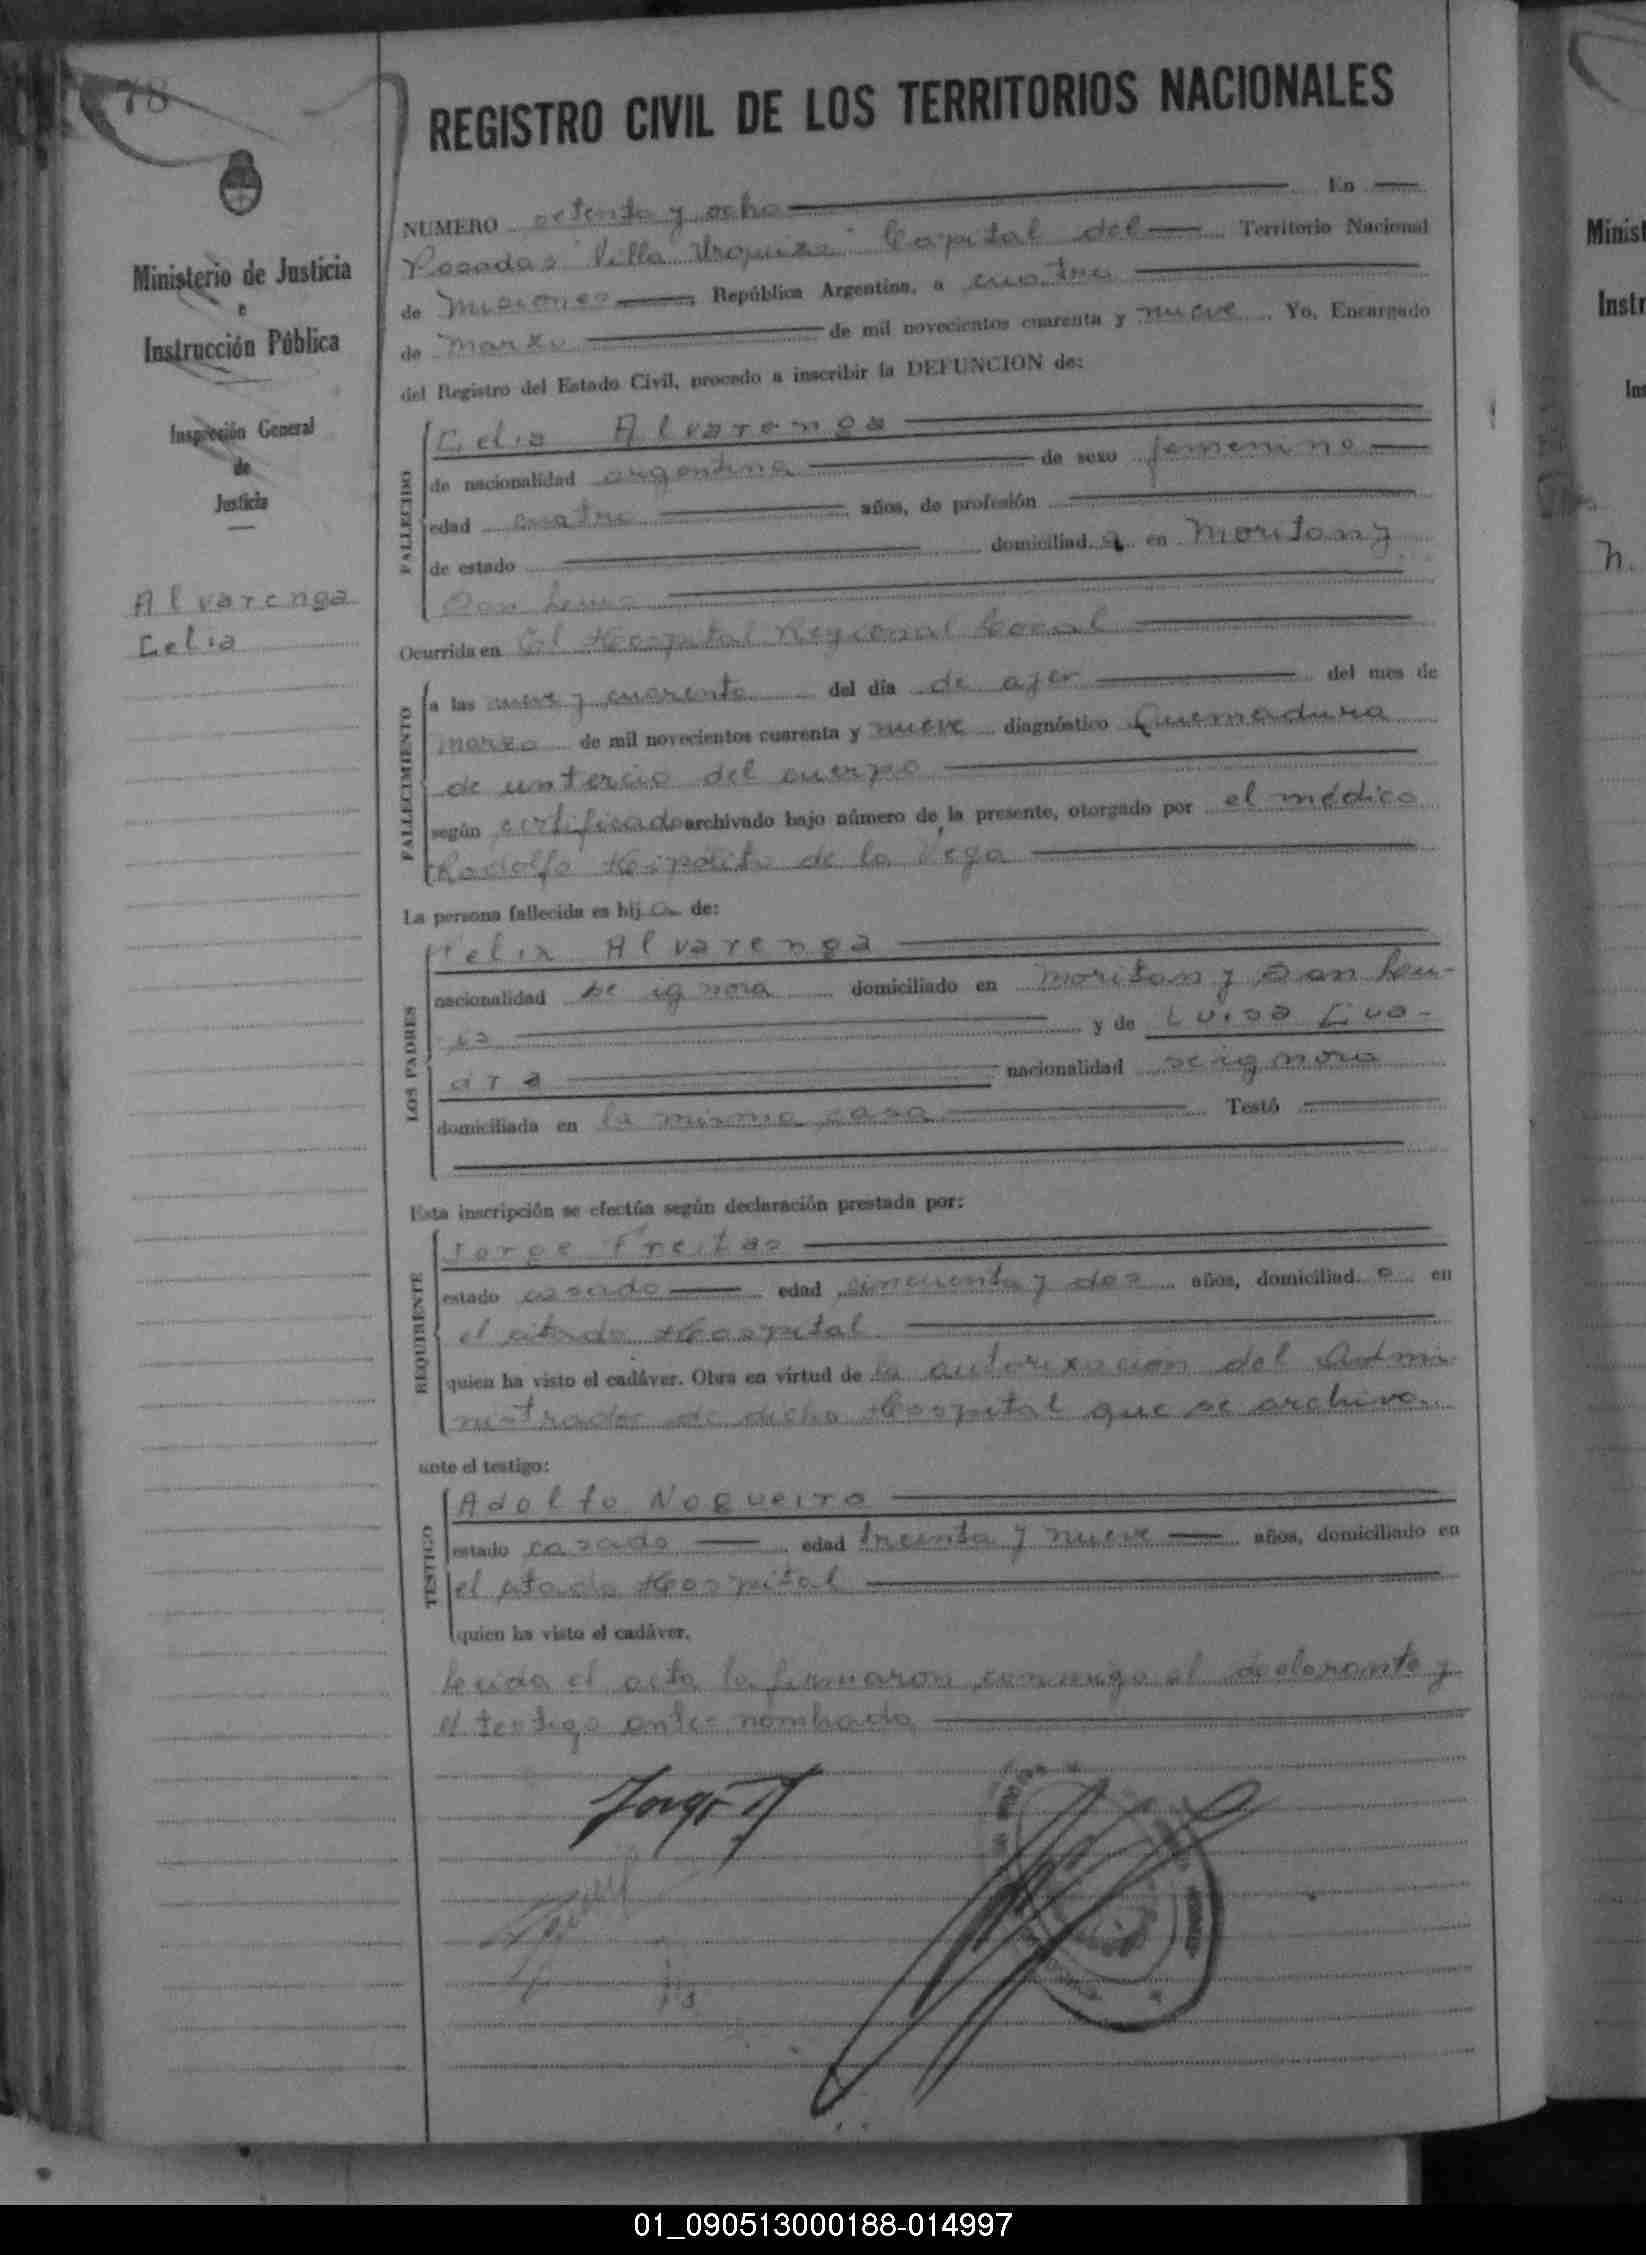 78
REGISTRO CIVIL DE LOS TERRITORIOS NACIONALES
Ministerio de Justicia
e
Instrucción Pública
Inspección General
de
Justicia
Alvarenga
Celia
NUMERO setenta y ocho En
Posadas "Villa Urquiza" Capital del Territorio Nacional
de Misiones República Argentina, a cuatro
de marzo de mil novecientos cuarenta y nueve Yo, Encargado
del Registro del Estado Civil, procedo a inscribir la DEFUNCION de:
FALLECIDO
Celia Alvarenga
de nacionalidad argentina de sexo femenino
edad cuatro años, de profesión
de estado domiciliad a en Moritan y
San Luis
Ocurrida en El Hospital Regional Local
FALLECIMIENTO
a las nueve y cuarenta del día de ayer del mes de
marzo de mil novecientos cuarenta y nueve diagnóstico Quemadura
de un tercio del cuerpo
según certificado archivado bajo número de la presente, otorgado por el médico
Rodolfo Hipólito de la Vega
La persona fallecida es hij a de:
LOS PADRES
Felix Alvarenga
nacionalidad se ignora domiciliado en Moritan y San Lu-
is y de Luisa Cua-
dra
nacionalidad se ignora
domiciliada en la misma casa Testó
Esta inscripción se efectúa según declaración prestada por:
REQUIRENTE
Jorge Freitas
estado casado edad cincuenta y dos años, domiciliad o en
el citado Hospital
quien ha visto el cadáver. Obra en virtud de la autorización del Admi
nistrador de dicho Hospital que se archiva
ante el testigo:
TESTIGO
Adolfo Nogueira
estado casado edad treinta y nueve años, domiciliado en
el citado Hospital
quien ha visto el cadáver.
Leida el acta la firmaron conmigo el declarante y
el testigo antes nombrado
Jorge
Minist
Instr
Ins
01_090513000188-014997